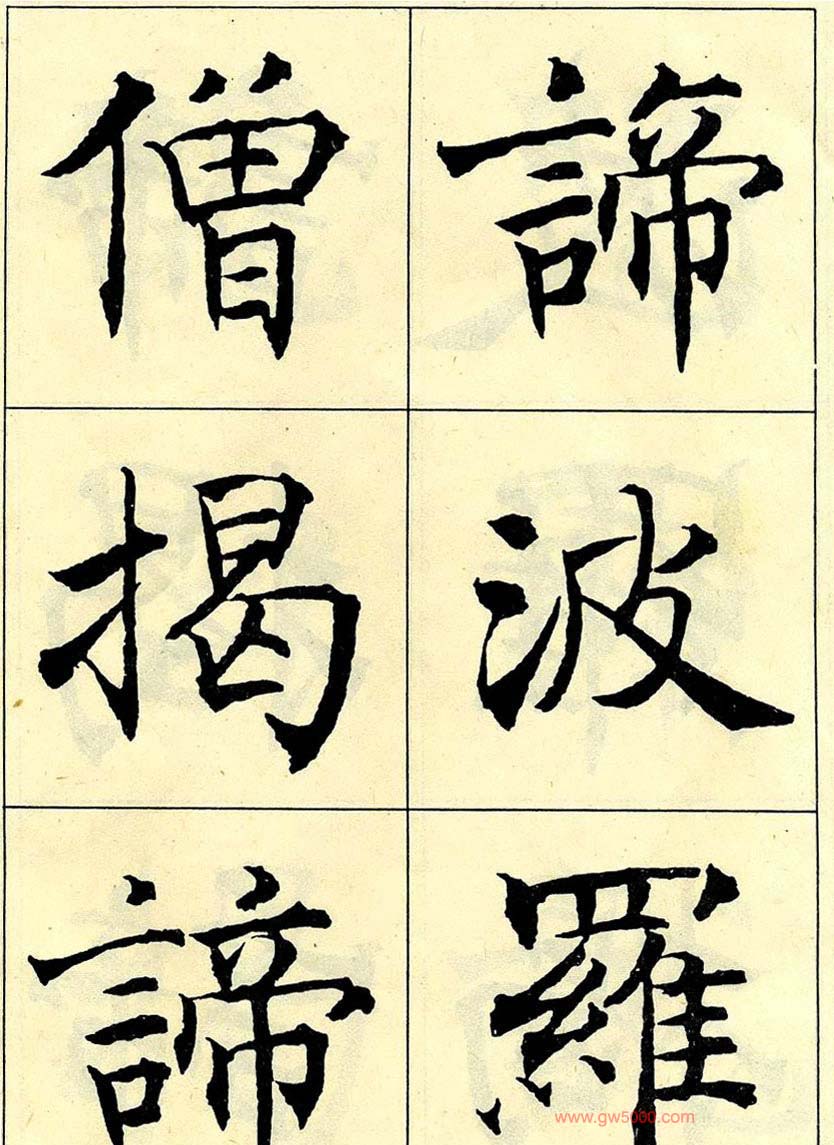 諦波羅
僧揭諦
www.gw5000.com